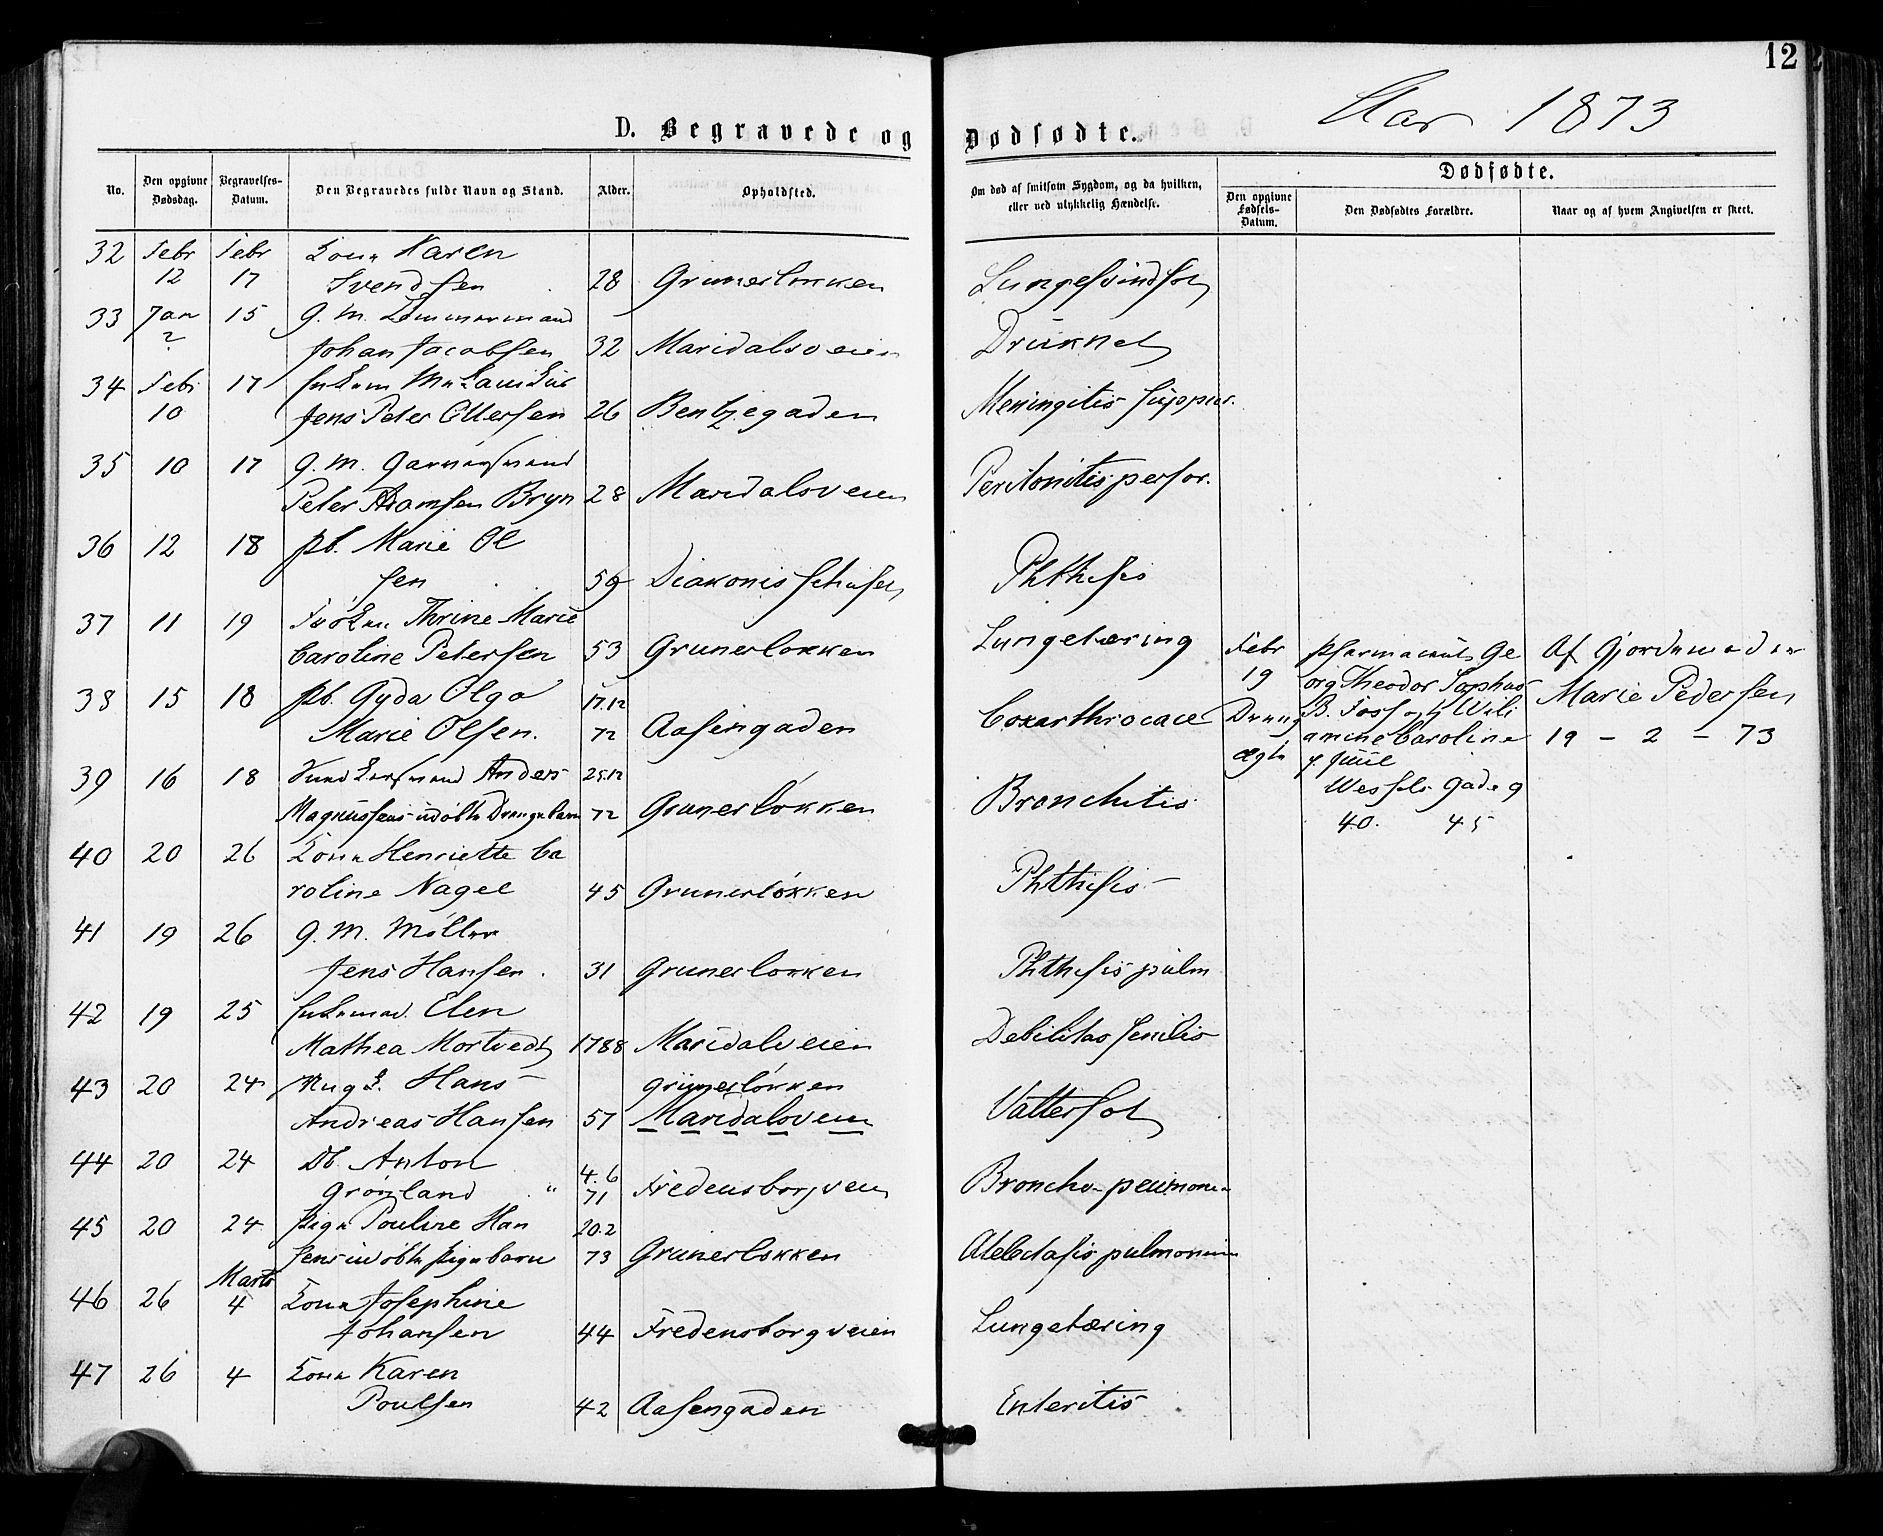 12
Aar 1873
D. Begravede og Dødfødte.
No.
Den opgivne Dødsdag.
Begravelses-Datum.
Den Begravedes fulde Navn og Stand.
Alder.
Opholdsted.
Om død af smitsom Sygdom, og da hvilken,
eller ved ulykkelig Hændelse.
Dødfødte.
Den opgivne Fødsels-Datum.
Den Dødfødtes Forældre.
Naar og af hvem Angivelsen er skeet.
32 Febr Febr Kone Karen
12 17 Svendsen 28 Grunerløkken Lungesvindsot
33 Jan 15 G. M. Tømmermand
? Johan Jacobsen 32 Maridalsveien Druknet
34 Feb. 17
10 Jens Peter Ottersen 26 Bentzegaden Meningitis suppur.
35 10 17 G. M.
Peter Bryn 28 Maridalsveien Peritonitis perfor.
36 12 18 pb. Marie Ol
sen 59 Diakonissehuset Phthisis
37 11 19 Thrine Marie
Caroline Petersen 53 Grunerløkken Lungetæring
38 15 18 pb. Gyda Olga 17.12
Marie Olsen. 72 Aasengaden Coxarthrocace
39 16 18 Anders 25.12
Magnussens udøbte Drengebarn 72 Grunerløkken Bronchitis
40 20 26 Kone Henriette Ca
roline Nagel 45 Grunerløkken Phthisis
41 19 26 G. M. Møller
Jens Hansen. 31 Grunerløkken Phthisis pulm
42 19 25 Elen
Mathea Mortvedt 1788 Maridalsveien Debilitas senilis
43 20 24 Ungk. Hans Grünerløkken
Andreas Hansen 57 Maridalsveien Vattersot
44 20 24 Db. Anton 4.6
Grønland " 71 Fredensborgveien Broncho-pneumonia
45 20 24 Pige Pouline Han 20.2
sens udøbte Pigebarn 73 Grunerløkken Atelectasis pulmonum
Marts
46 26 4 Kone Josephine
Johansen 44 Fredensborgveien Lungetæring
47 26 4 Kone Karen
Poulsen 42 Aasengaden Enteritis
Febr
19
Dreng
ægte
Ge
org Theodor Sophus
B. Foss og H
amine Caroline
f. Juul
Wessels Gade 9
40. 45
Af Gjordemoder
Marie Pedersen
19 - 2 - 73